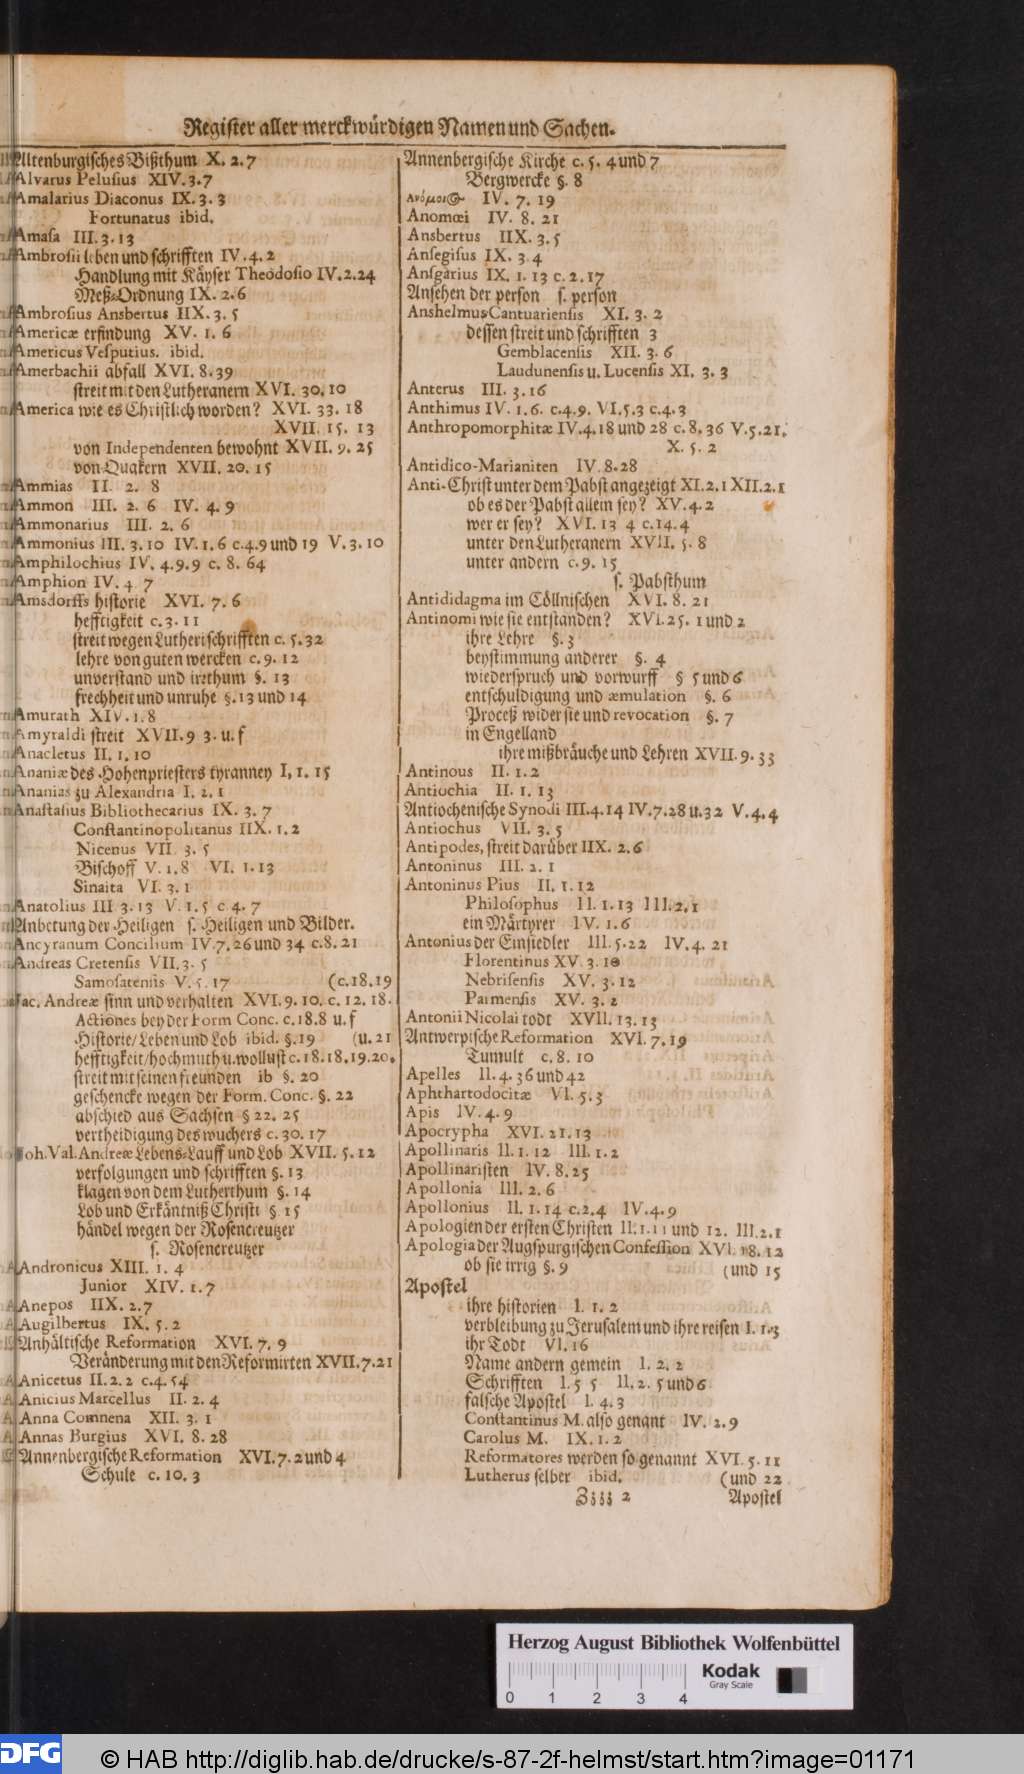 Register aller merckwürdigen Namen und Sachen.
Altenburgisches Bißthum X. 2. 7
Alvarus Pelusius XIV. 3. 7
Amalarius Diaconus IX. 3. 3
Fortunatus ibid.
Amasa III. 3. 13
Ambrosii leben und schrifften IV. 4. 2
Handlung mit Käyser Theodosio IV. 2. 24
Meß-Ordnung IX. 2. 6
Ambrosius Ansbertus IIX. 3. 5
Americæ erfindung XV. 1. 6
Americus Vesputius. ibid.
Amerbachii abfall XVI. 8. 39
streit mit den Lutheranern XVI. 30. 10
America wie es Christlich worden? XVI. 33. 18
XVII. 15. 13
von Independenten bewohnt XVII. 9. 25
von Quakern XVII. 20. 15
Ammias II. 2. 8
Ammon III. 2. 6 IV. 4. 9
Ammonarius III. 2. 6
Ammonius III. 3. 10 IV. 1. 6 c. 4. 9 und 19 V. 3. 10
Amphilochius IV. 4. 9. 9 c. 8. 64
Amphion IV. 4 7
Amsdorffs historie XVI. 7. 6
hefftigkeit c. 3. 11
streit wegen Lutheri schrifften c. 5. 32
lehre von guten wercken c. 9. 12
unverstand und irrthum §. 13
frechheit und unruhe §. 13 und 14
Amurath XIV. 1. 8
Amyraldi streit XVII. 9 3. u. f
Anacletus II. 1. 10
Ananiæ des Hohenpriesters tyranney I, 1. 15
Ananias zu Alexandria I. 2. 1
Anastasius Bibliothecarius IX. 3. 7
Constantinopolitanus IIX. 1. 2
Nicenus VII 3. 5
Bischoff V. 1. 8 VI. 1. 13
Sinaita VI. 3. 1
Anatolius III 3. 13 V. 1. 5 c. 4. 7
Anbetung der Heiligen s. Heiligen und Bilder.
Ancyranum Concilium IV. 7. 26 und 34 c. 8. 21
Andreas Cretensis VII. 3. 5
Samosatensis V. 5. 17 (c. 18. 19
Jac. Andreæ sinn und verhalten XVI. 9. 10. c. 12. 18.
Actiones bey der Form Conc. c. 18. 8 u. f
Historie/ Leben und Lob ibid. §. 19 (u. 21
hefftigkeit/ hochmuth u. wollust c. 18. 18. 19. 20.
streit mit seinen freunden ib §. 20
geschencke wegen der Form. Conc. §. 22
abschied aus Sachsen § 22. 25
vertheidigung des wuchers c. 30. 17
Joh. Val. Andreæ Lebens-Lauff und Lob XVII. 5. 12
verfolgungen und schrifften §. 13
klagen von dem Lutherthum §. 14
Lob und Erkäntniß Christi § 15
händel wegen der Rosencreutzer
s. Rosencreutzer
Andronicus XIII. 1. 4
Junior XIV. 1. 7
Anepos IIX. 2. 7
Augilbertus IX. 5. 2
Anhältische Reformation XVI. 7. 9
Veränderung mit den Reformirten XVII. 7. 21
Anicetus II. 2. 2 c. 4. 54
Anicius Marcellus II. 2. 4
Anna Comnena XII. 3. 1
Annas Burgius XVI. 8. 28
Annenbergische Reformation XVI. 7. 2 und 4
Schule c. 10. 3
Annenbergische Kirche c. 5. 4 und 7
Bergwercke §. 8
IV. 7. 19
Anomœi IV. 8. 21
Ansbertus IIX. 3. 5
Ansegisus IX. 3 4
Ansgarius IX. 1. 13 c. 2. 17
Ansehen der person s. person
Anshelmus Cantuariensis XI. 3. 2
dessen streit und schrifften 3
Gemblacensis XII. 3. 6
Laudunensis u. Lucensis XI. 3. 3
Anterus III. 3. 16
Anthimus IV. 1. 6. c. 4. 9. VI. 5. 3 c. 4. 3
Anthropomorphitæ IV. 4. 18 und 28 c. 8. 36 V. 5. 21.
X. 5. 2
Antidico-Marianiten IV. 8. 28
Anti-Christ unter dem Pabst angezeigt XI. 2. 1 XII. 2. 1
ob es der Pabst allein sey? XV. 4. 2
wer er sey? XVI. 13 4 c. 14. 4
unter den Lutheranern XVII. 5. 8
unter andern c. 9. 15
s. Pabsthum
Antididagma im Cöllnischen XVI. 8. 21
Antinomi wie sie entstanden? XVI. 25. 1 und 2
ihre Lehre §. 3
beystimmung anderer §. 4
wiederspruch und vorwurff § 5 und 6
entschuldigung und æmulation §. 6
Proceß wider sie und revocation §. 7
in Engelland
ihre mißbräuche und Lehren XVII. 9. 33
Antinous II. 1. 2
Antiochia II. 1. 13
Antiochenische Synodi III. 4. 14 IV. 7. 28 u. 32 V. 4. 4
Antiochus VII. 3. 5
Antipodes, streit darüber IIX. 2. 6
Antoninus III. 2. 1
Antoninus Pius II. 1. 12
Philosophus II. 1. 13 III. 2. 1
ein Märtyrer IV. 1. 6
Antonius der Einsiedler III. 5. 22 IV. 4. 21
Florentinus XV. 3. 10
Nebrisensis XV. 3. 12
Parmensis XV. 3. 2
Antonii Nicolai todt XVII. 13. 13
Antwerpische Reformation XVI. 7. 19
Tumult c. 8. 10
Apelles II. 4. 36 und 42
Aphthartodocitæ VI. 5. 3
Apis IV. 4. 9
Apocrypha XVI. 21. 13
Apollinaris II. 1. 12 III. 1. 2
Apollinaristen IV. 8. 25
Apollonia III. 2. 6
Apollonius II. 1. 14 c. 2. 4 IV. 4. 9
Apologien der ersten Christen II. 1. 11 und 12. III. 2. 1
Apologia der Augspurgischen Confession XVI. 18. 12
ob sie irrig §. 9 (und 15
Apostel
ihre historien I. 1. 2
verbleibung zu Jerusalem und ihre reisen I. 1. 3
ihr Todt VI. 16
Name andern gemein I. 2. 2
Schrifften I. 5 5 II. 2. 5 und 6
falsche Apostel I. 4. 3
Constantinus M. also genant IV. 2. 9
Carolus M. IX. 1. 2
Reformatores werden so genannt XVI. 5. 11
Lutherus selber ibid. (und 22
Zzzz 2 Apostel
Herzog August Bibliothek Wolfenbüttel
0 1 2 3 4
Kodak
Gray Scale
DFG © HAB http://diglib.hab.de/drucke/s-87-2f-helmst/start.htm?image=01171